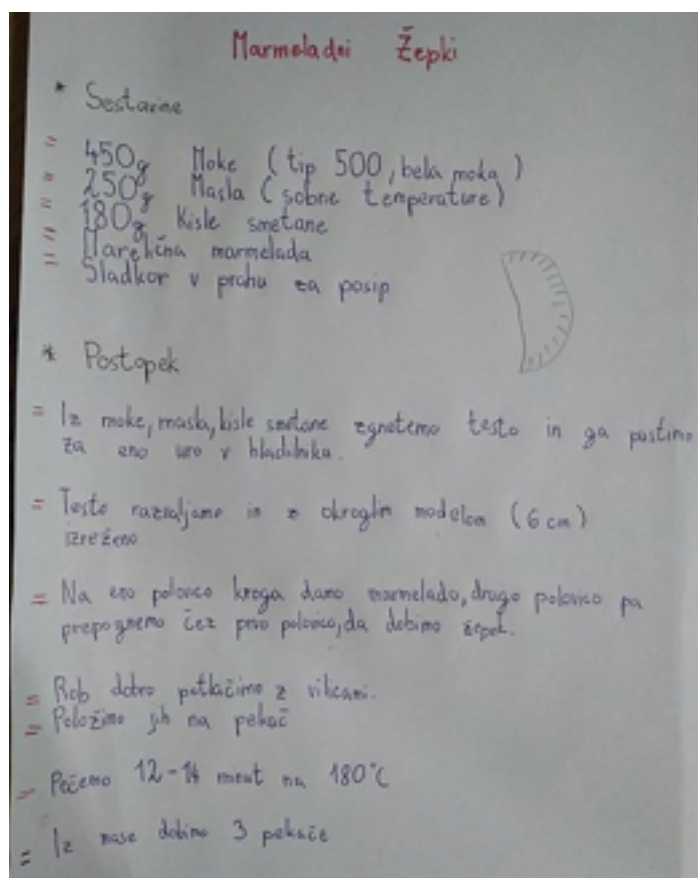 Marmeladni Žepki
* Sestavine
= 450g Moke (tip 500, bela moka)
= 250g Masla (sobne temperature)
= 180g Kisle smetane
= Marelična marmelada
= Sladkor v prahu za posip
* Postopek
= Iz moke, masla, kisle smetane zgnetemo testo in ga pustimo
za eno uro v hladilniku.
= Testo razvaljamo in z okroglim modelom (6 cm)
izrežemo
= Na eno polovico kroga damo marmelado, drugo polovico pa
prepognemo čez prvo polovico, da dobimo žepek.
= Rob dobro potlačimo z vilicami.
= Položimo jih na pekač
= Pečemo 12-14 minut na 180°C
= Iz mase dobimo 3 pekače